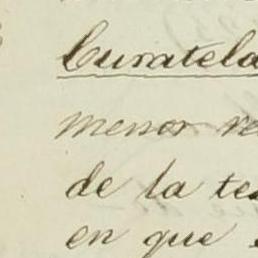 Curatela
menor re
de la te
en que